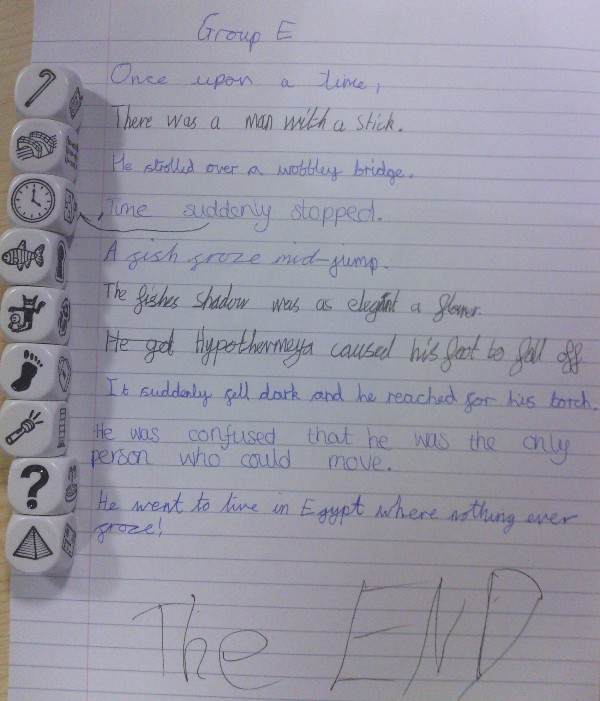 Group E
Once upon a time,
There was a man with a stick.
He strolled over a wobbley bridge.
Time suddenly stopped.
A fish froze mid-jump.
The fishes shadow was as elegant a flower.
He got Hypothermeya caused his foot to fall off
It suddenly fell dark and he reached for his torch.
He was confused that he was the only
person who could move.
He went to live in Egypt where nothing ever
froze!
The END